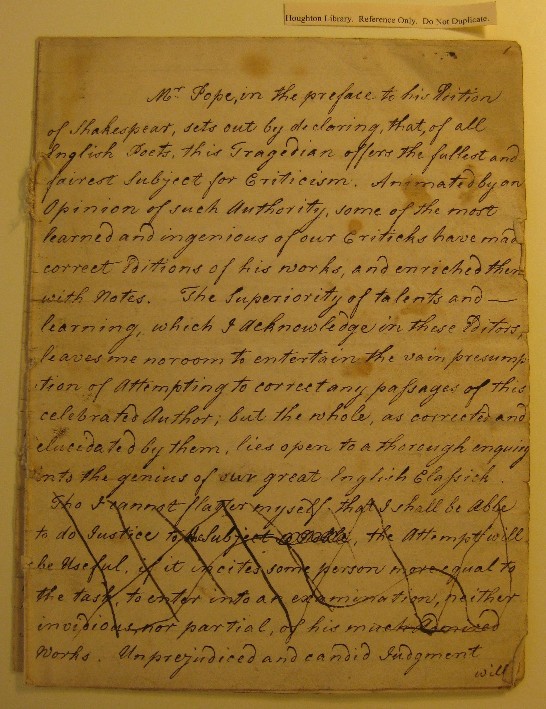 Houghton Library. Reference Only. Do Not Duplicate.
1
Mr. Pope, in the preface to his Edition
of Shakespear, sets out by declaring, that, of all
English Poets, this Tragedian offers the fullest and
fairest Subject for Criticism. Animated by an
Opinion of such Authority, some of the most
learned and ingenious of our Criticks have made
correct Editions of his works, and enriched them
with Notes. The Superiority of talents and —
learning, which I Acknowledge in these Editors,
leaves me no room to entertain the vain presump
tion of Attempting to correct any passages of this
celebrated Author; but the whole, as corrected and
elucidated by them, lies open to a thorough enquiry
into the genius of our great English Classick.
Tho I cannot flatter myself that I shall be Able
to do Justice to the Subject, the Attempt will
be Useful, if it incites some person more equal to
the task, to enter into an examination, neither
invidious, nor partial, of his much
Works. Unprejudiced and candid Judgment
will